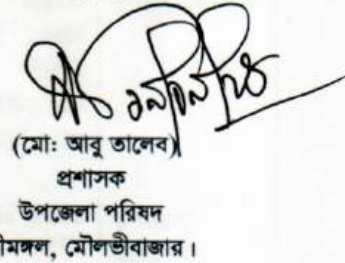 (মো: আবু তালেব)
প্রশাসক
উপজেলা পরিষদ
মৌলভীবাজার।